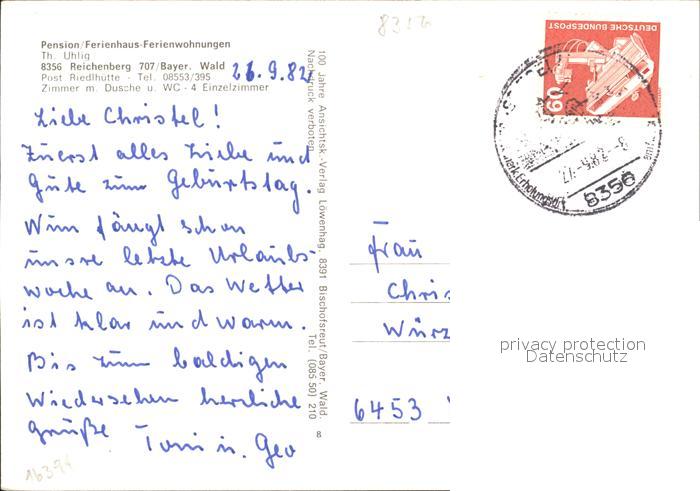 8356
Pension/Ferienhaus-Ferienwohnungen
Th. Uhlig
8356 Reichenberg 707/Bayer. Wald
Post Riedlhütte - Tel. 08553/395
Zimmer m. Dusche u. WC - 4 Einzelzimmer
26.9.82
Liebe Christel!
Zuerst alles Liebe und
Gute zum Geburtstag.
Nun fängt schon
unsre letzte Urlaubs-
woche an. Das Wetter
ist klar und warm.
Bis zum baldigen
Wiedersehen herzliche
Grüße Toni u. Geo
16394
100 Jahre Ansichtsk.-Verlag Löwenhag, 8391 Bischofsreut/Bayer. Wald.
Nachdruck verboten. Tel. (085 50) 210
8
DEUTSCHE BUNDESPOST
60
8356
Frau
Chris
Würz
6453
privacy protection
Datenschutz